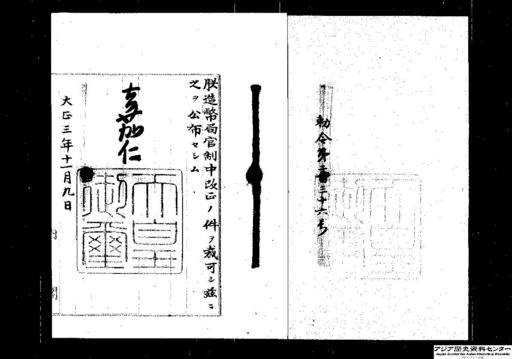 勅令第二百三十六号
朕造幣局官制中改正ノ件ヲ裁可シ茲ニ
之ヲ公布セシム
嘉仁
天皇御璽
大正三年十一月九日
内閣
アジア歴史資料センター
Japan Center for Asian Historical Records